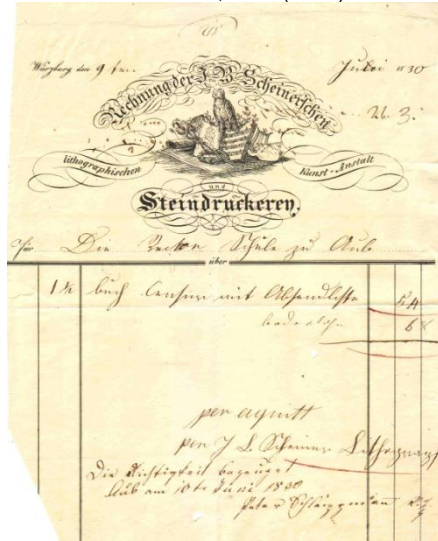 Würzburg den 9ten Juli 1830
Rechnung der J. B. Scheinerschen
lithographischen Kunst-Anstalt
und
Steindruckerey.
Für Die Schule zu Aub
über
1 ½ buch Censur mit 54
6
per aquitt
per J. B. Scheiner Lithograph
Die Richtigkeit bezeuget
Aub am 10te Juni 1830
Peter